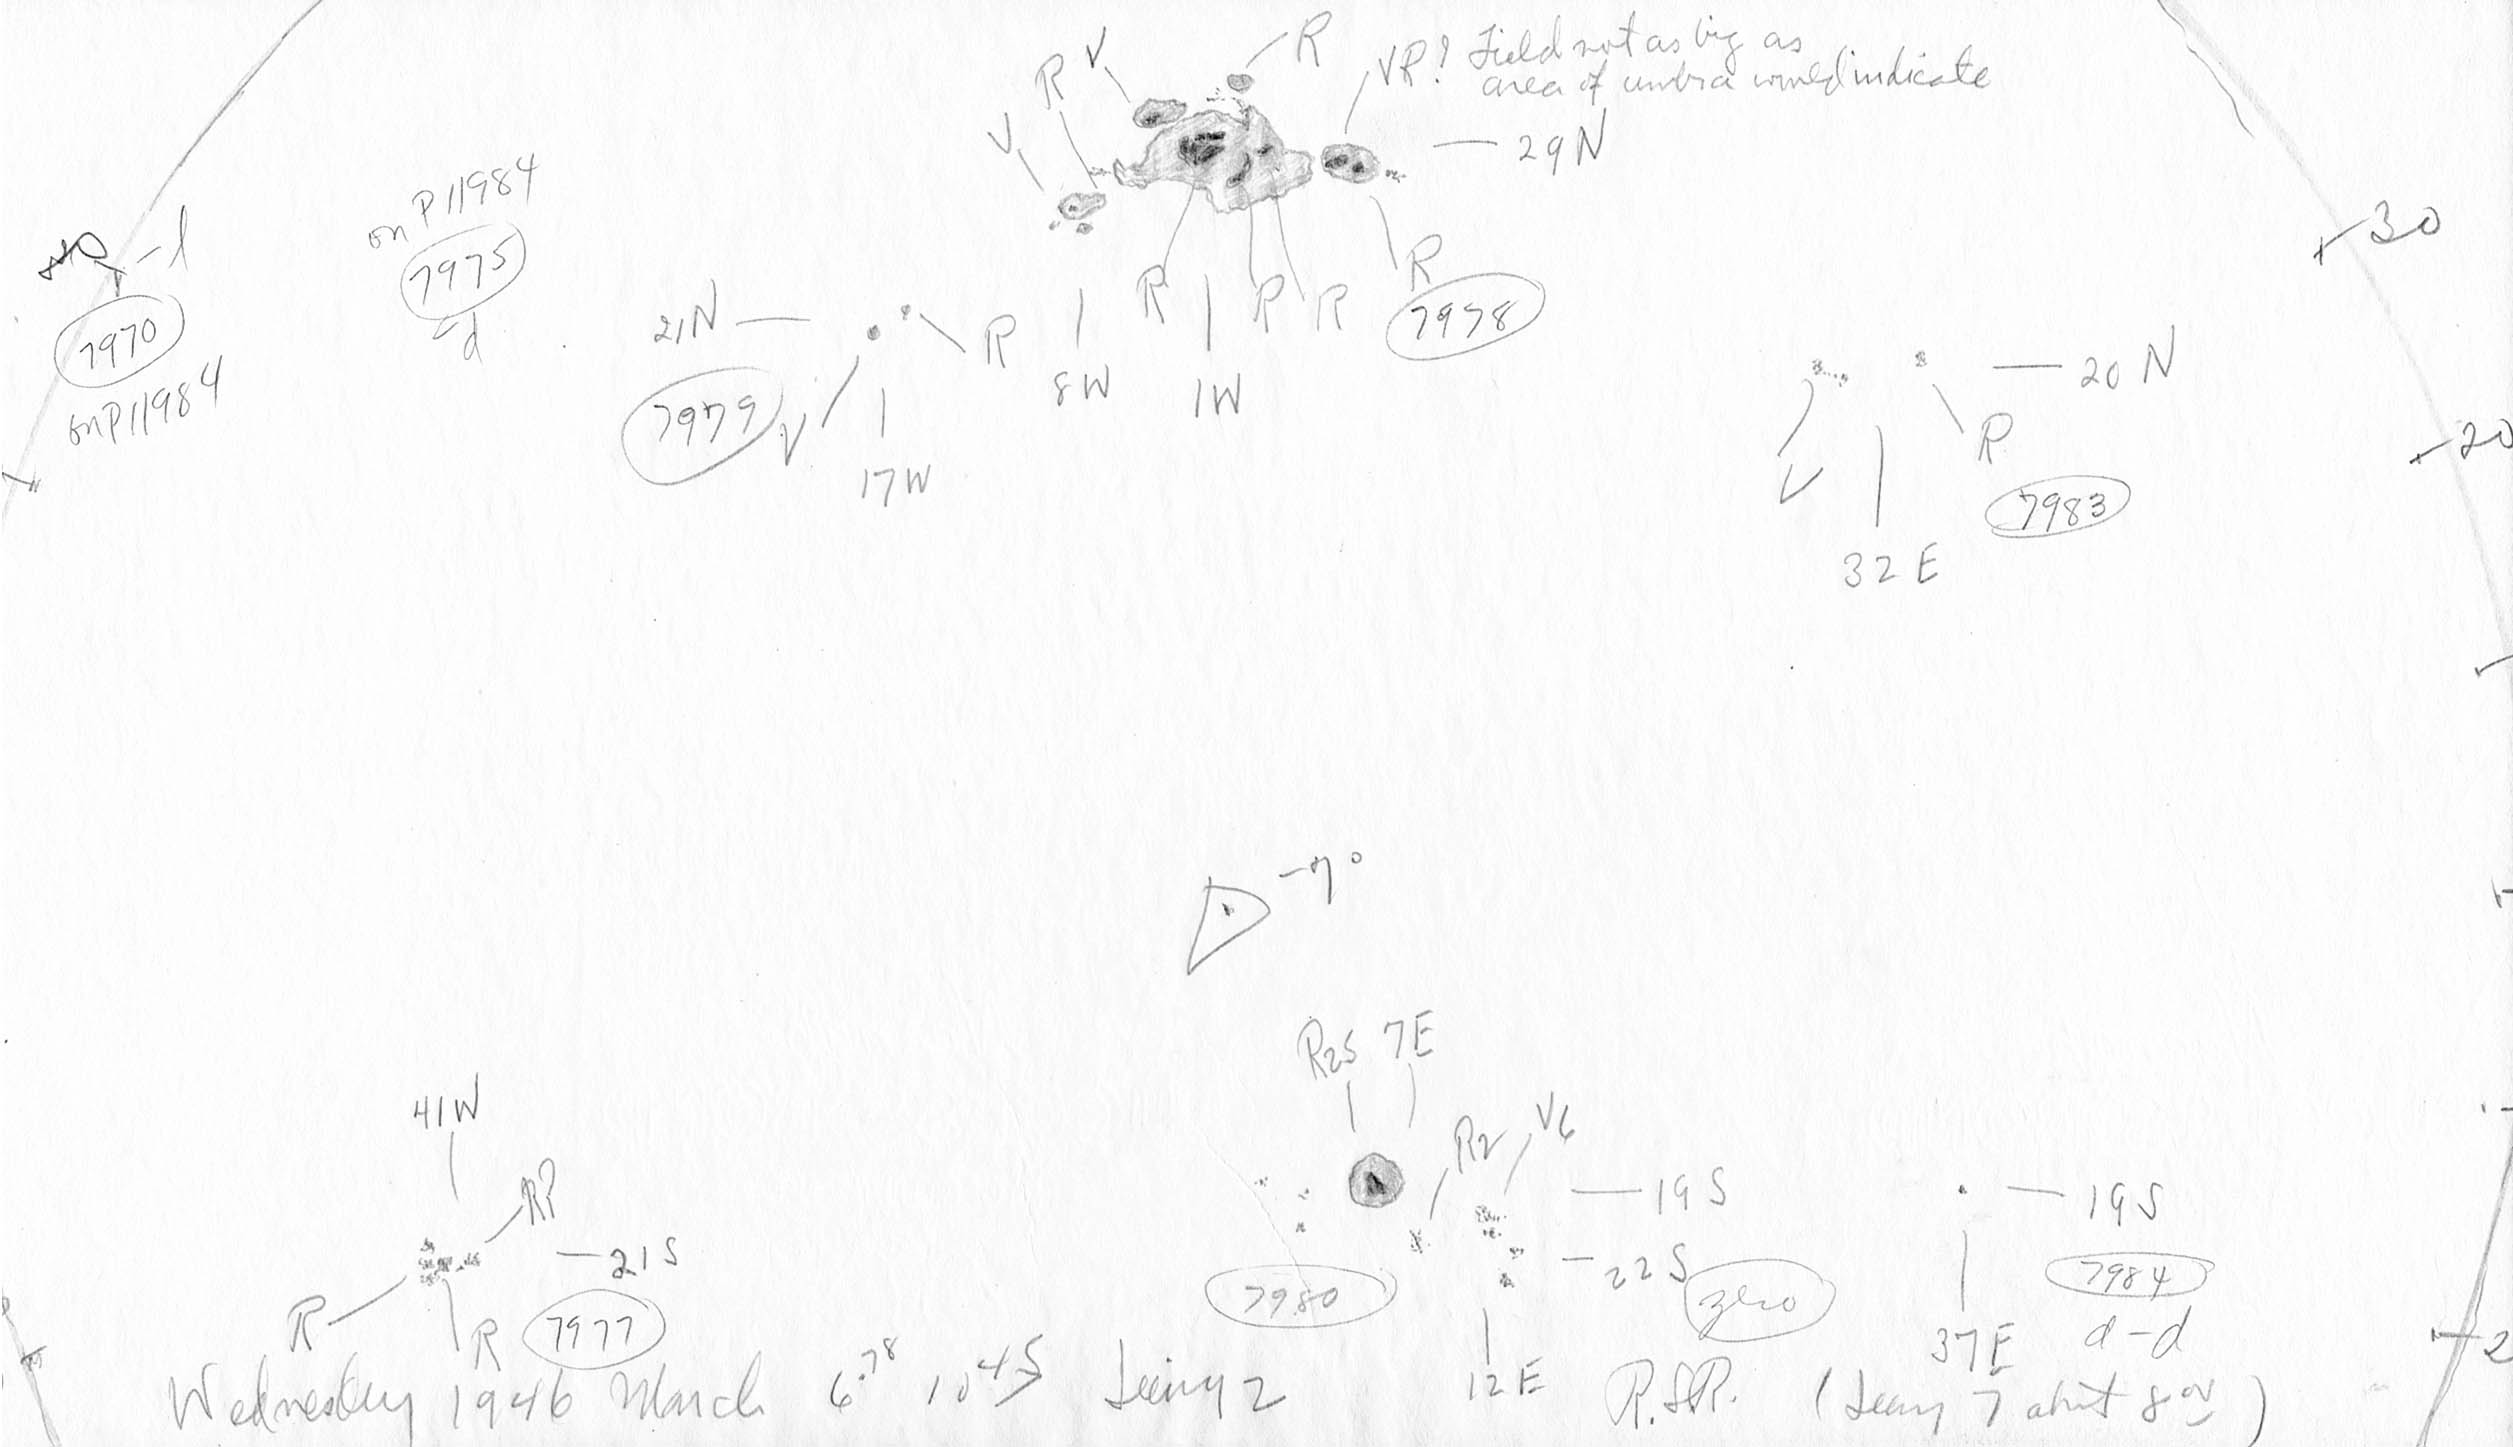 R
V
R
VR? Field not as big as
area of umbra would indicate
V
29N
on P11984
7975
-d
40 -l
7970
on P11984
30
21N
R
R
R
R
R
7978
8W
1W
7979
V
17W
20N
20
V
R
7983
32E
-7°
R25 7E
41W
R2
V6
R?
19S
19S
21S
22S
7980
zero
7984
d-d
R
R
7977
37E
2
12E
Wednesday 1946 March 6.78 10 45 Seeing 2 R.S.R. (Seeing 7 about 8 00)